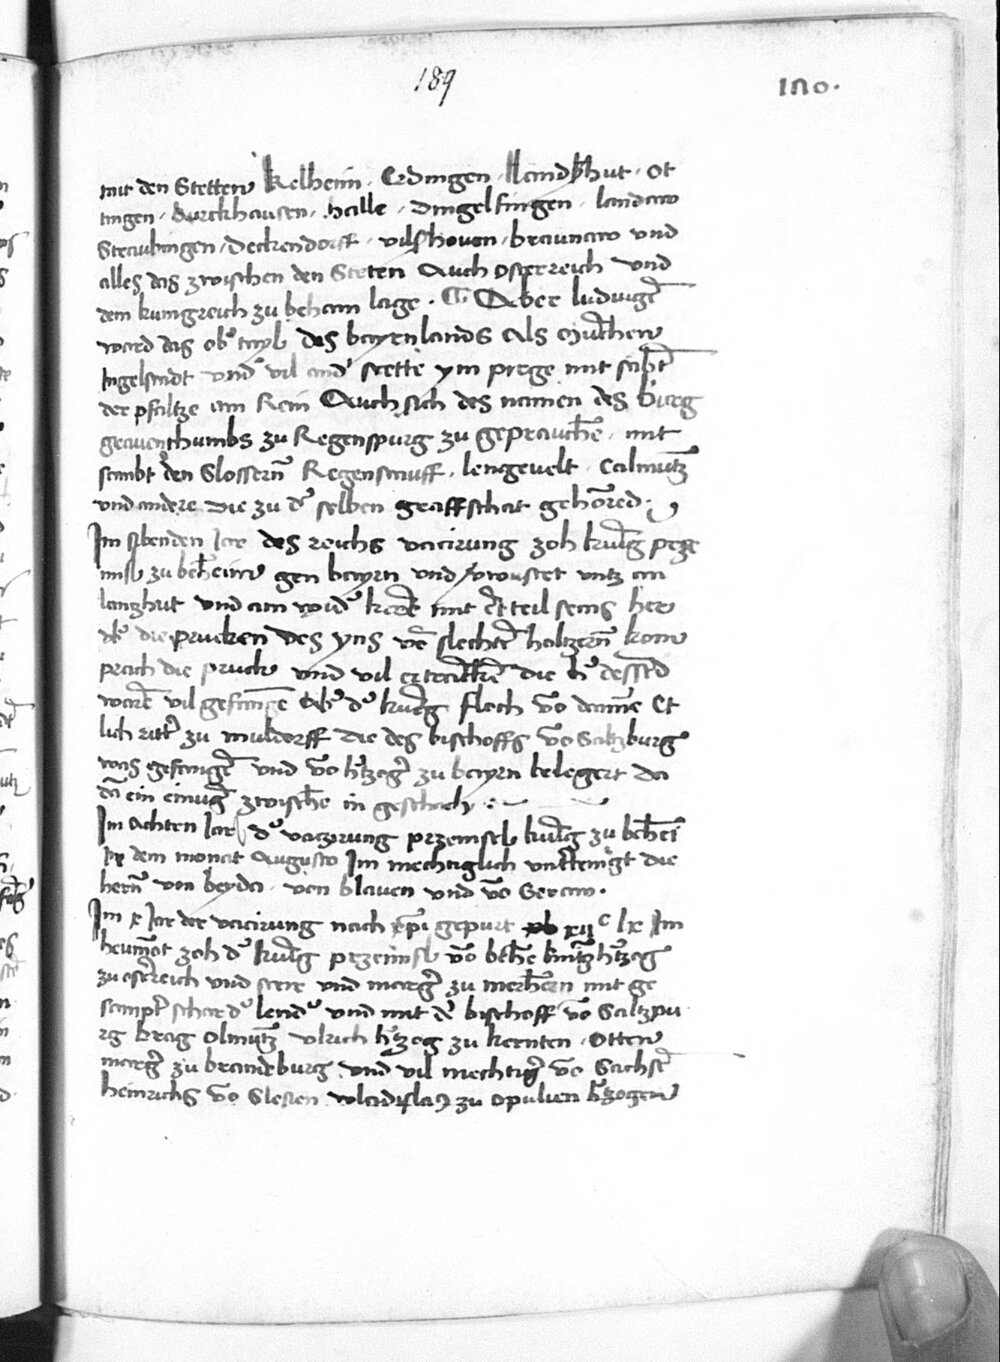 189
180.
mit den Stetten Kelheim . Erdingen . Landshut . Ot
tingen . Burckhausen . Halle . Dingelfingen . landaw
Straubingen . Deckendorff . vilshouen . braunaw vnd
alles das zwischen den Steten Auch osterreich vnd
dem kunigreich zu beham lage . Aber ludwigē
ward das obˀ tayl des bayrnlands Als Munchen
Ingelstadt vnd vil andˀ stette ym pirge mit sabt
der pfaltze am Rein Auch sich des namen des burg
grauenthumbs zu Regenspurg zu geprauchē . mit
sambt den Slossern̄ Regenstauff . lengevelt . Calmūtz
vnd andere die zu dˀ selben graffschat gehored .
Im sibenden Iar des reichs vacirung zoh kūig prze
misl zu behein gen bayrn vnd vwustet vntz an
langhut vnd am widˀ kerē mit teil seins her
die prucken des yns vō slechtē holtzern̄ kom
prach die pruck vnd vil ertranckē die dˀ
warē vil gefangē dˀ kūig floch vō danne Et
lich ritˀ zu muldorff die des bischoffs vō Saltzburg
was gefangē vnd vō htzogē zu bayrn belegert da
ein einūg zwischē in geschech .
Im Achten Iar dˀ vacirung przemisl kūig zu behēi
dem monat Augusto Im mechtiglich die
hern̄ von beyda . von blawen vnd vō Geraw .
Im x Iar der vacirung nach xpi gepurt xijᶜ lx Im
heumōt zoh dˀ kūig przemisl vō behē htzog
zu ostˀreich vnd steir vnd margē zu merhern mit ge
sampt schar dˀ lendˀ vnd mit dē bischoff vō Saltzpu
rg brag Olmūtz vlrich htzog zu kernten . Otten
margē zu brandēburg vnd vil mechtigē vō Sachsē
heinrichs vō Slesien wladislaꝰ zu opulien htzogen